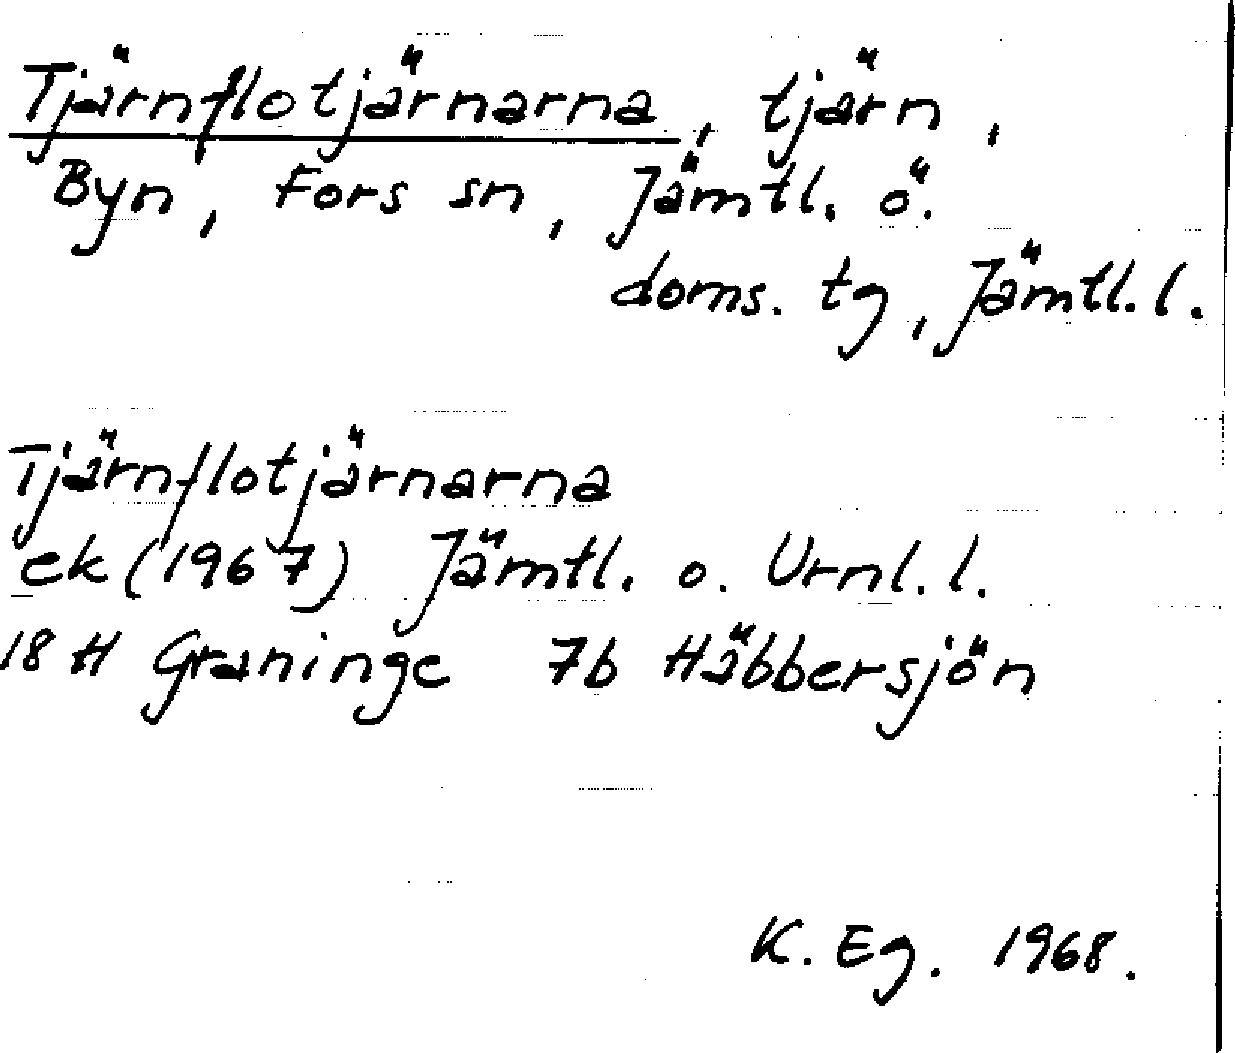 Tjärnflotjärnarna, tjärn,
Byn, Fors sn, Jämtl. ö.
doms. tg, Jämtl. l.
Tjärnflotjärnarna
ek (1967) Jämtl. o. Vrnl. l.
18 H Graninge 7b Häbbersjön
K. Eg. 1968.